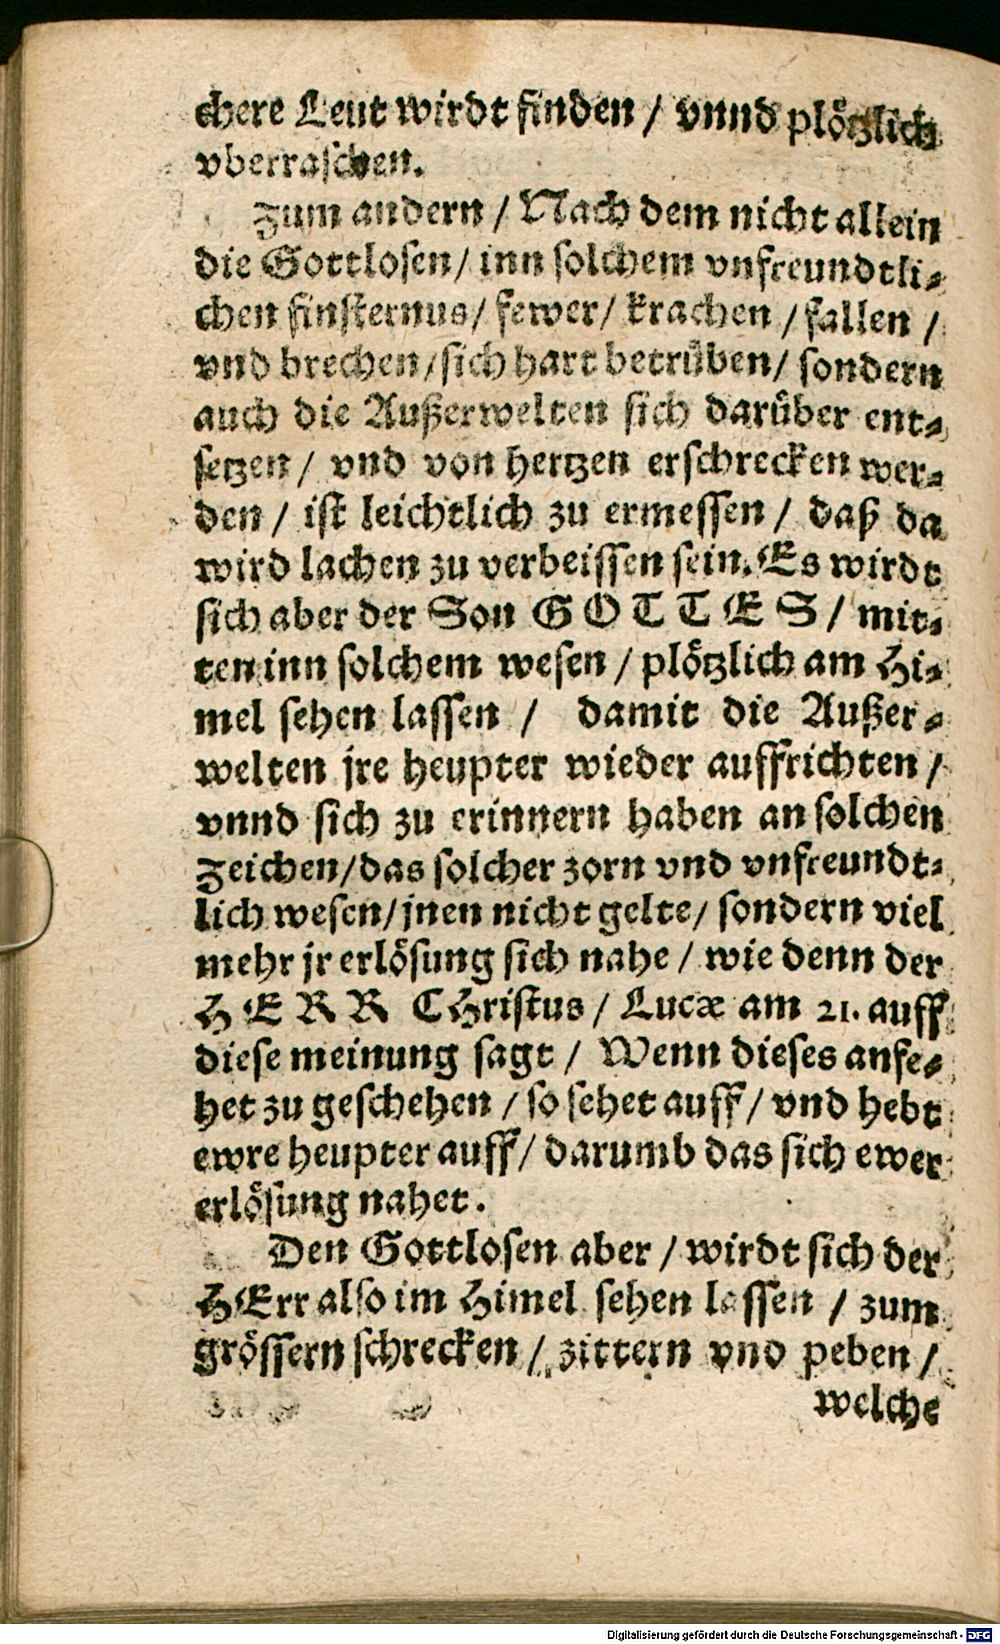 chere Leut wirdt finden / vnnd plötzlich
vberraschen.
Zum andern / Nach dem nicht allein
die Gottlosen / inn solchem vnfreundtli⸗
chen finsternus / fewer / krachen / fallen /
vnd brechen / sich hart betrüben / sondern
auch die Außerwelten sich darüber ent⸗
setzen / vnd von hertzen erschrecken wer⸗
den / ist leichtlich zu ermessen / daß da
wird lachen zu verbeissen sein. Es wirdt
sich aber der Son GOTTES / mit⸗
ten inn solchem wesen / plötzlich am Hi⸗
mel sehen lassen / damit die Außer⸗
welten jre heupter wieder auffrichten /
vnnd sich zu erinnern haben an solchen
Zeichen / das solcher zorn vnd vnfreundt⸗
lich wesen / jnen nicht gelte / sondern viel
mehr jr erlösung sich nahe / wie denn der
HERR CHristus / Lucæ am 21. auff
diese meinung sagt / Wenn dieses anfe⸗
het zu geschehen / so sehet auff / vnd hebt
ewre heupter auff / darumb das sich ewer
erlösung nahet.
Den Gottlosen aber / wirdt sich der
HErr also im Himel sehen lassen / zum
grössern schrecken / zittern vnd peben /
welche
Digitalisierung gefördert durch die Deutsche Forschungsgemeinschaft - DFG